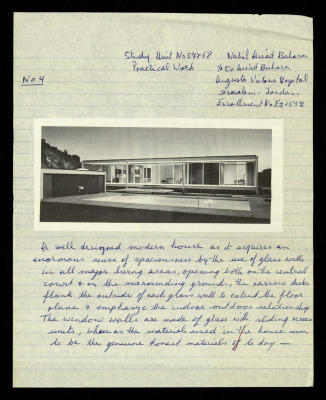 Study Unit No 57258 Nabil Fuad Buhara
Practical Work % Dr. Fuad Buhara
No. 4 Augusta Victoria Hospital
Jerusalem - Jordan
Enrollment No
A well designed modern house as it acquires an
enormous sense of spaciousness by the use of glass walls
in all major living areas, opening both on the central
court & on the surrounding grounds, the narrow decks
flank the outside of each glass wall to extend the floor
plane & emphasize the indoor outdoor relationship
The window walls are made of glass with sliding screen
units, where as the materials used in the house seem
to be the genuine honest materials of to day —